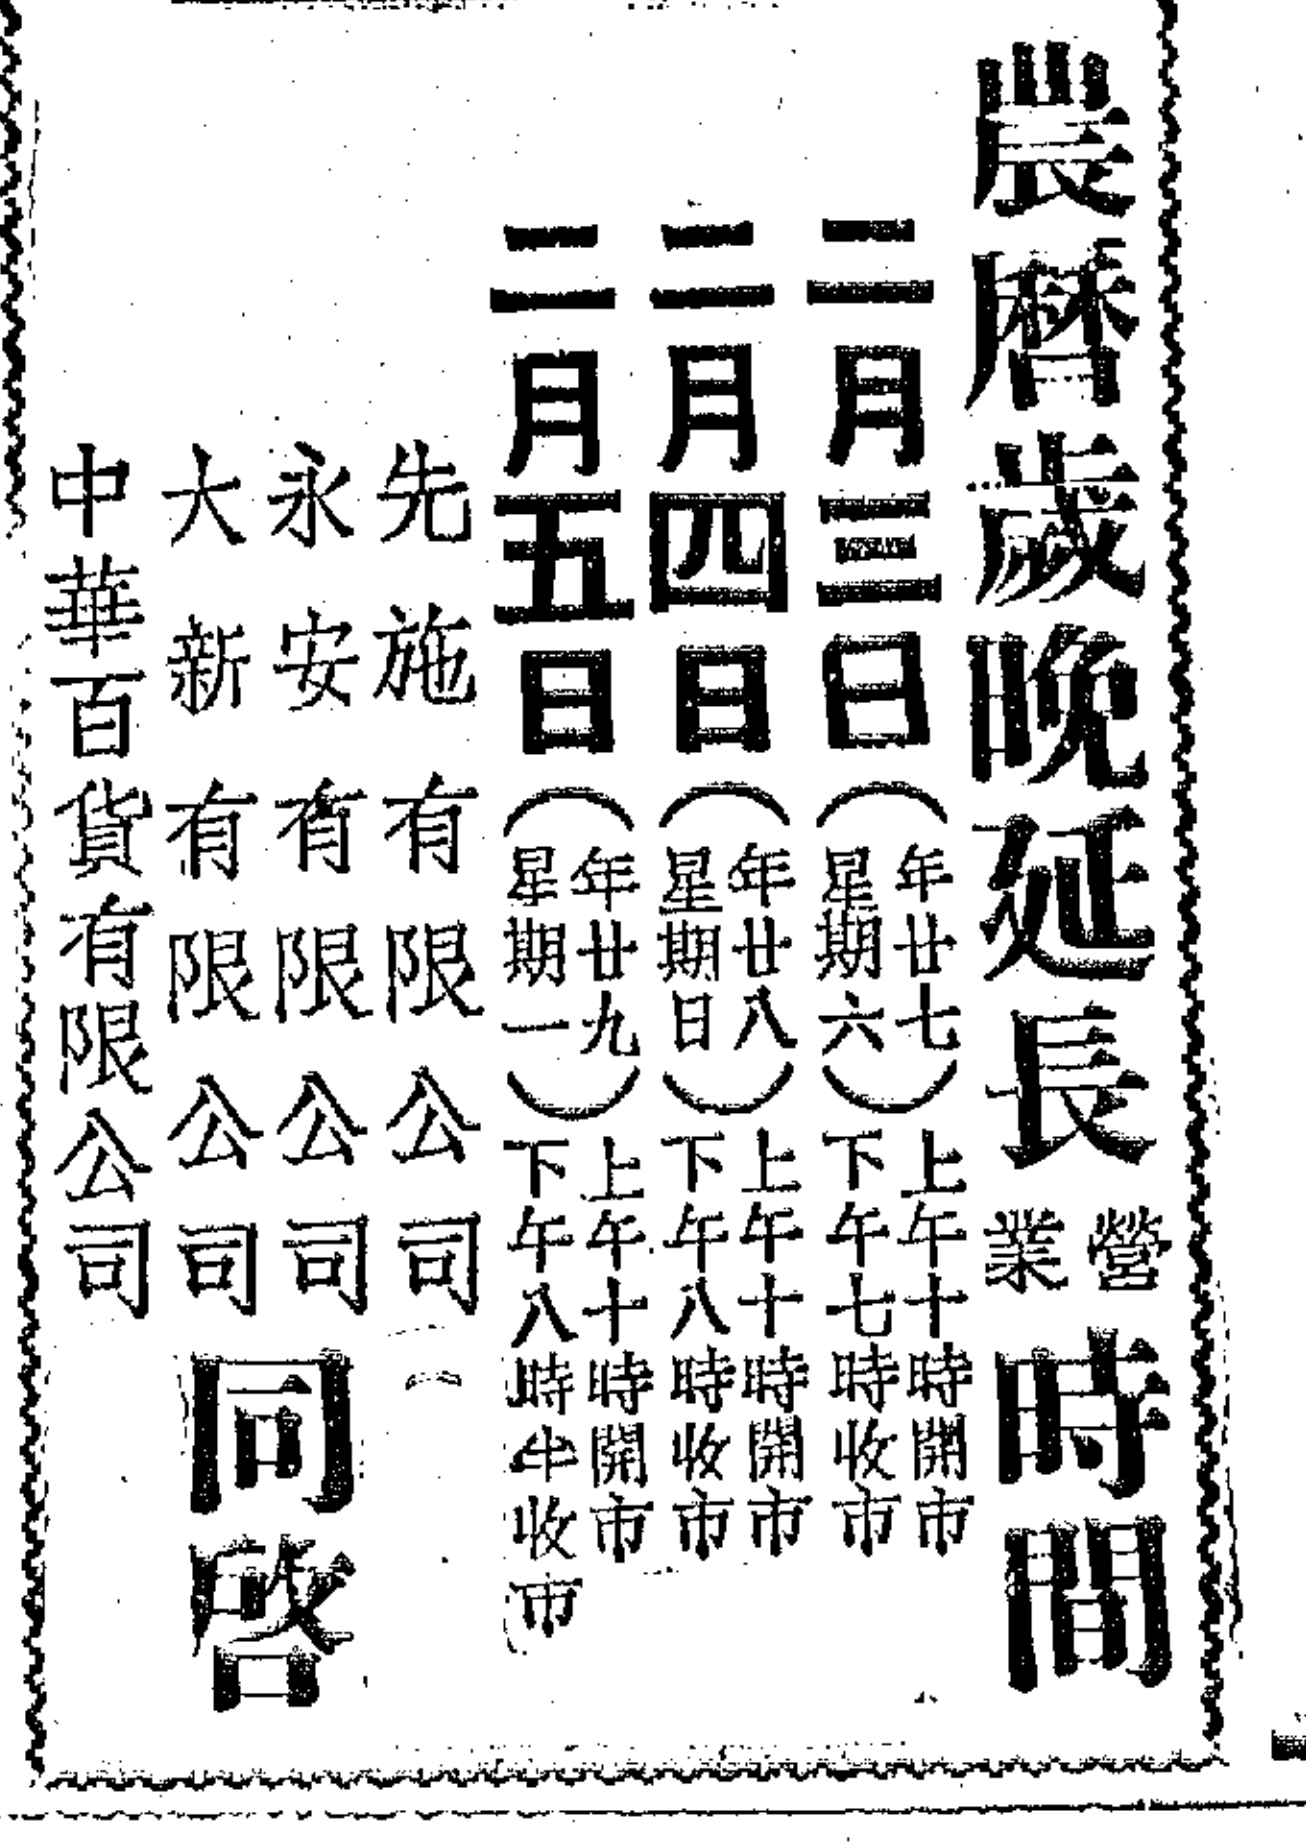 農曆歲晚延長營業時間
二月三日(年廿七星期六)上午十時開市下午七時收市
二月四日(年廿八星期日)上午十時開市下午八時收市
二月五日(年廿九星期一)上午十時開市下午八時半收市
先施有限公司
永安有限公司
大新有限公司
中華百貨有限公司
同啓